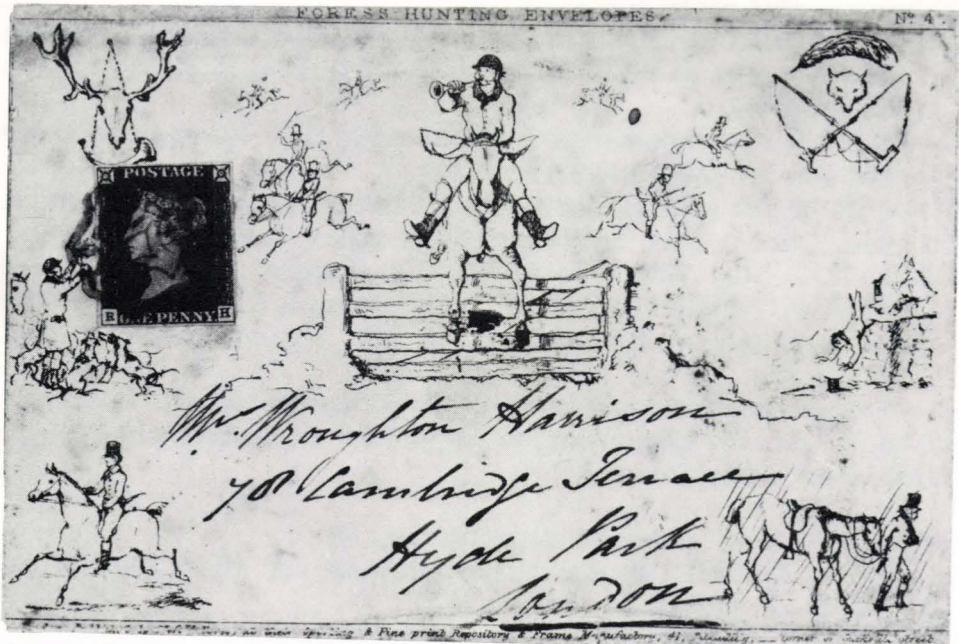 FORES'S HUNTING ENVELOPES.
Nº 4.
POSTAGE
R ONE PENNY H
Mr. Wroughton Harrison
78 Cambridge Terrace
Hyde Park
London
Sporting & Fine print Repository & Frame Manufactory, 41,